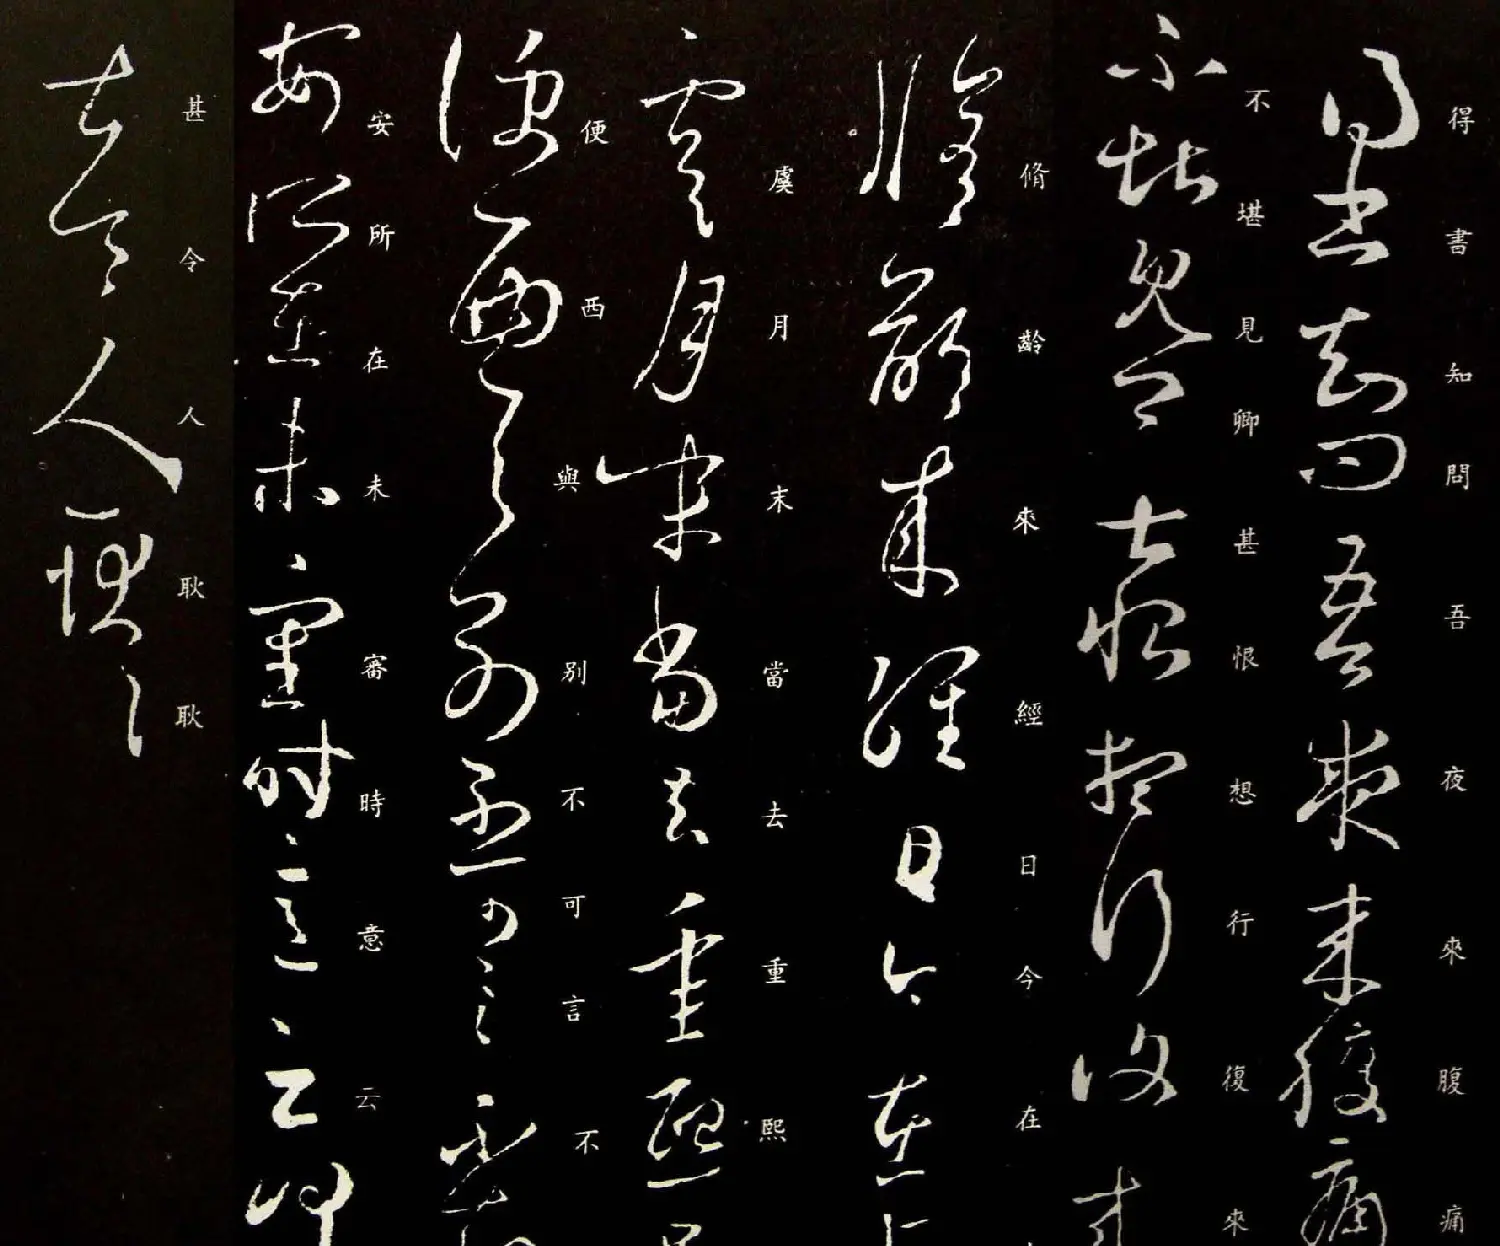 得書知問吾夜來腹痛
不堪見卿甚恨想行復來
脩齡來經日今在
虞月末當去重熙
便西與別不可言不
安所在未審時意云
甚令人耿耿